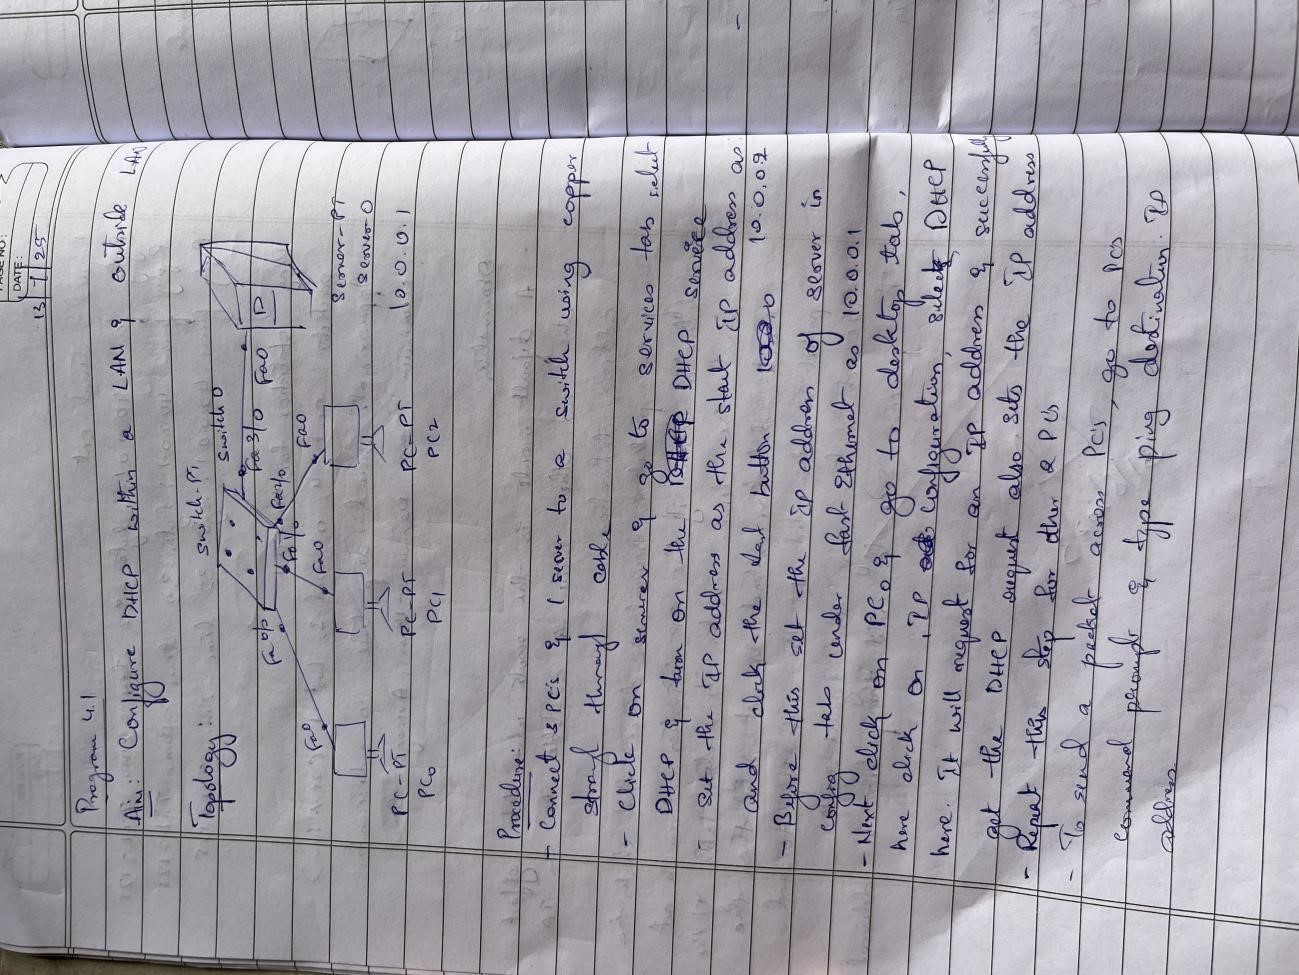 PAGE NO:
DATE:
13/ /25
Program 4.1
Aim: Configure DHCP within a LAN & outside LAN
Topology:
Switch-PT
Switch 0
Fa0/0
Fa1/0
Fa2/0
Fa3/0
Fa0
Fa0
Fa0
Fa0
PC-PT
PC0
PC-PT
PC1
PC-PT
PC2
Server-PT
Server-0
10.0.0.1
Procedure:
- Connect 3 PC's & 1 server to a switch using copper
through cable
- Click on server & go to services tab select
DHCP & turn on the DHCP service
- set the IP address as the start IP address as
and click the button 10.0.0.2
- Before this set the IP address of server in
config tab under fast Ethernet as 10.0.0.1
- Next click on PC0 & go to desktop tab,
here click on IP configuration, select DHCP
here. It will request for an IP address & successfully
get the DHCP request also sets the IP address
- Repeat this step for other 2 PCs
- To send a packet across PC's, go to PCs
command prompt & type ping destination IP
address